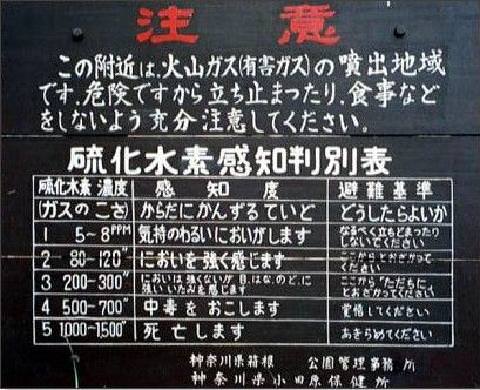 注意
この附近は、火山ガス(有害ガス)の噴出地域
です、危険ですから立ち止まったり、食事など
をしないよう充分注意してください。
硫化水素感知判別表
硫化水素濃度 感知度 避難基準
(ガスのこさ) からだにかんずるていど どうしたらよいか
1 5~8PPM 気持のわるいにおいがします なるべく立ちどまったりしないでください
2 80-120〃 においを強く感じます ここからとおざかってください
3 200-300〃 においは強くないが、目、はな、のど、に強いいたみを感じます ここから「ただちに」とおざかってください
4 500-700〃 中毒をおこします 覚悟してください
5 1,000-1,500〃 死亡します あきらめてください
神奈川県箱根 公園管理事務所
神奈川県小田原保健所